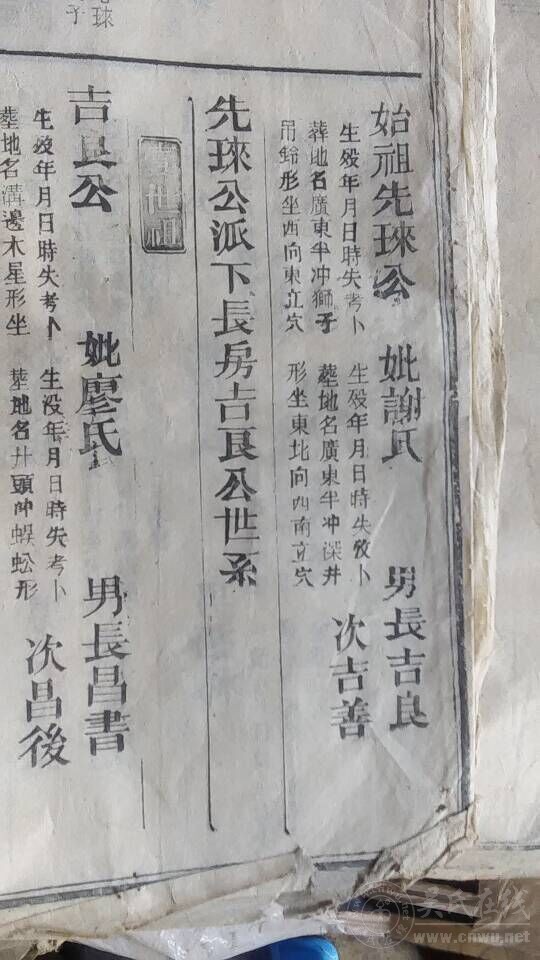 始祖先琜公 妣謝氏 男長吉良
次吉善
生殁年月日時失考卜
葬地名廣東半冲獅子
吊鈴形坐西向東立穴
生殁年月日時失攷卜
葬地名廣東半冲深井
形坐東北向西南立穴
先琜公派下長房吉良公世系
世祖
吉良公 妣廖氏 男長昌書
次昌後
生殁年月日時失考卜
塟地名溝邊木星形坐
生殁年月日時失考卜
塟地名井頭冲蜈蚣形
吴氏在线
www.cnwu.net